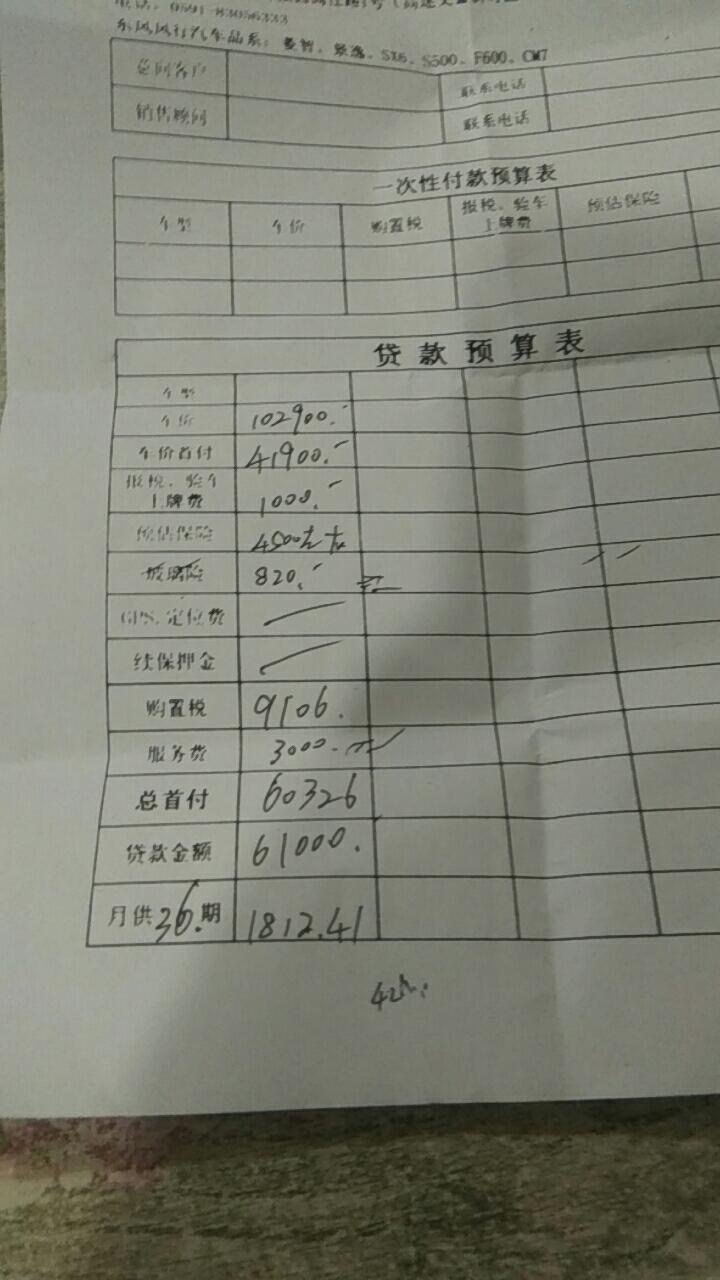 东风风行汽车品系：菱智、景逸、SX6、S500、F600、CM7
意向客户 联系电话
销售顾问 联系电话
一次性付款预算表
车型 车价 购置税 报税、验车上牌费 预估保险
贷款预算表
车型
车价 102900.-
车价首付 41900.-
报税、验车上牌费 1000.-
预估保险 4500
玻璃险 820.-
GPS.定位费
续保押金
购置税 9106.
服务费 3000.
总首付 60326
贷款金额 61000.
月供36.期 1812.41